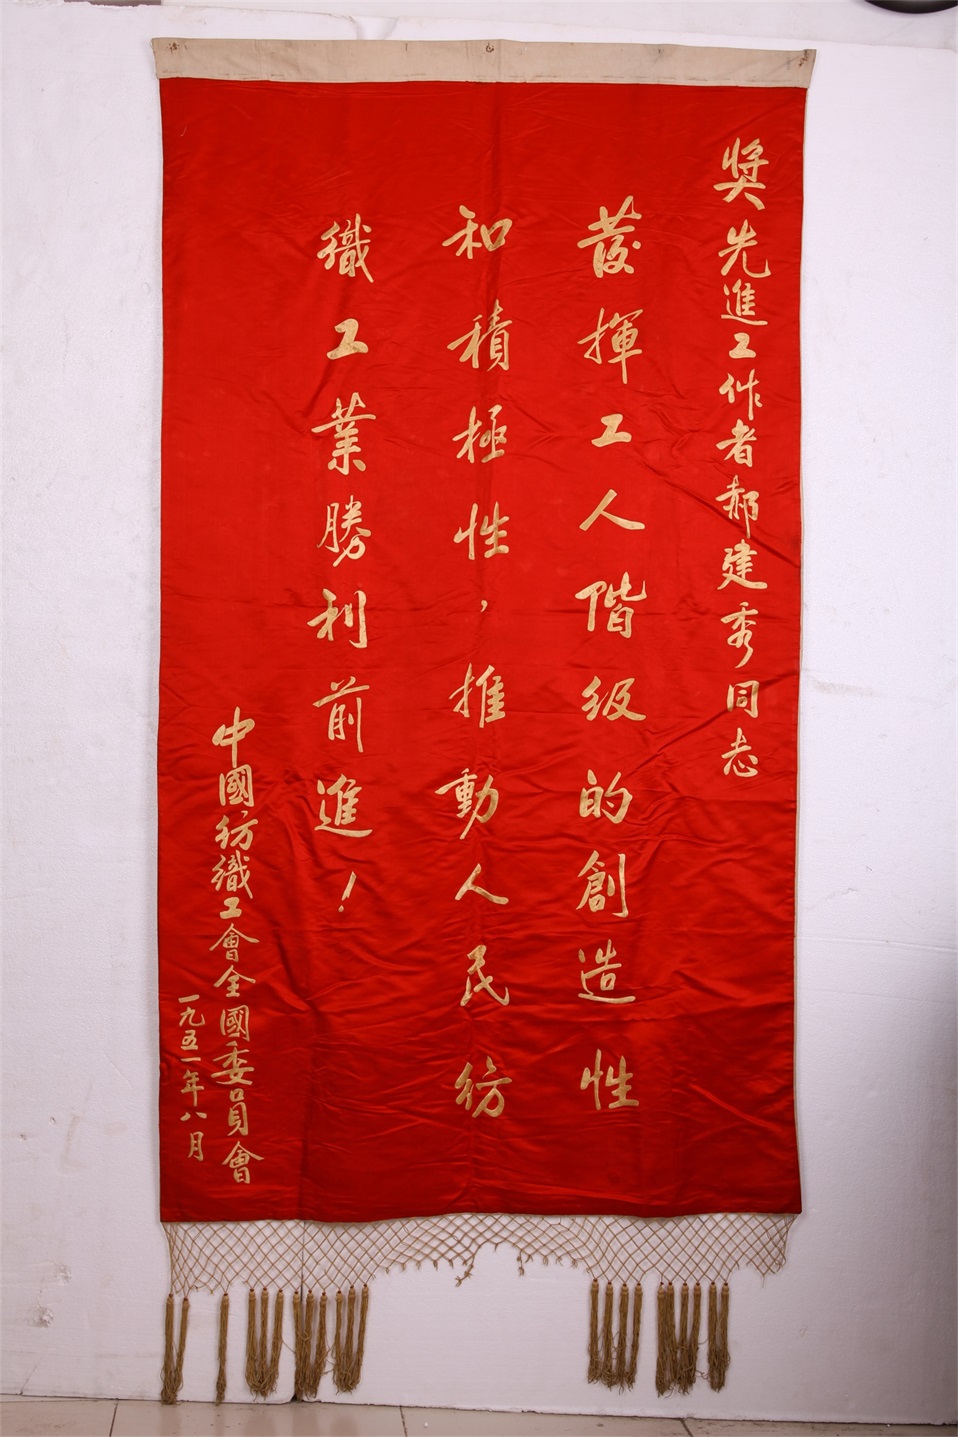 奬先進工作者郝建秀同志
發揮工人階級的創造性
和積極性，推動人民紡
織工業勝利前進！
中國紡織工會全國委員會
一九五一年八月